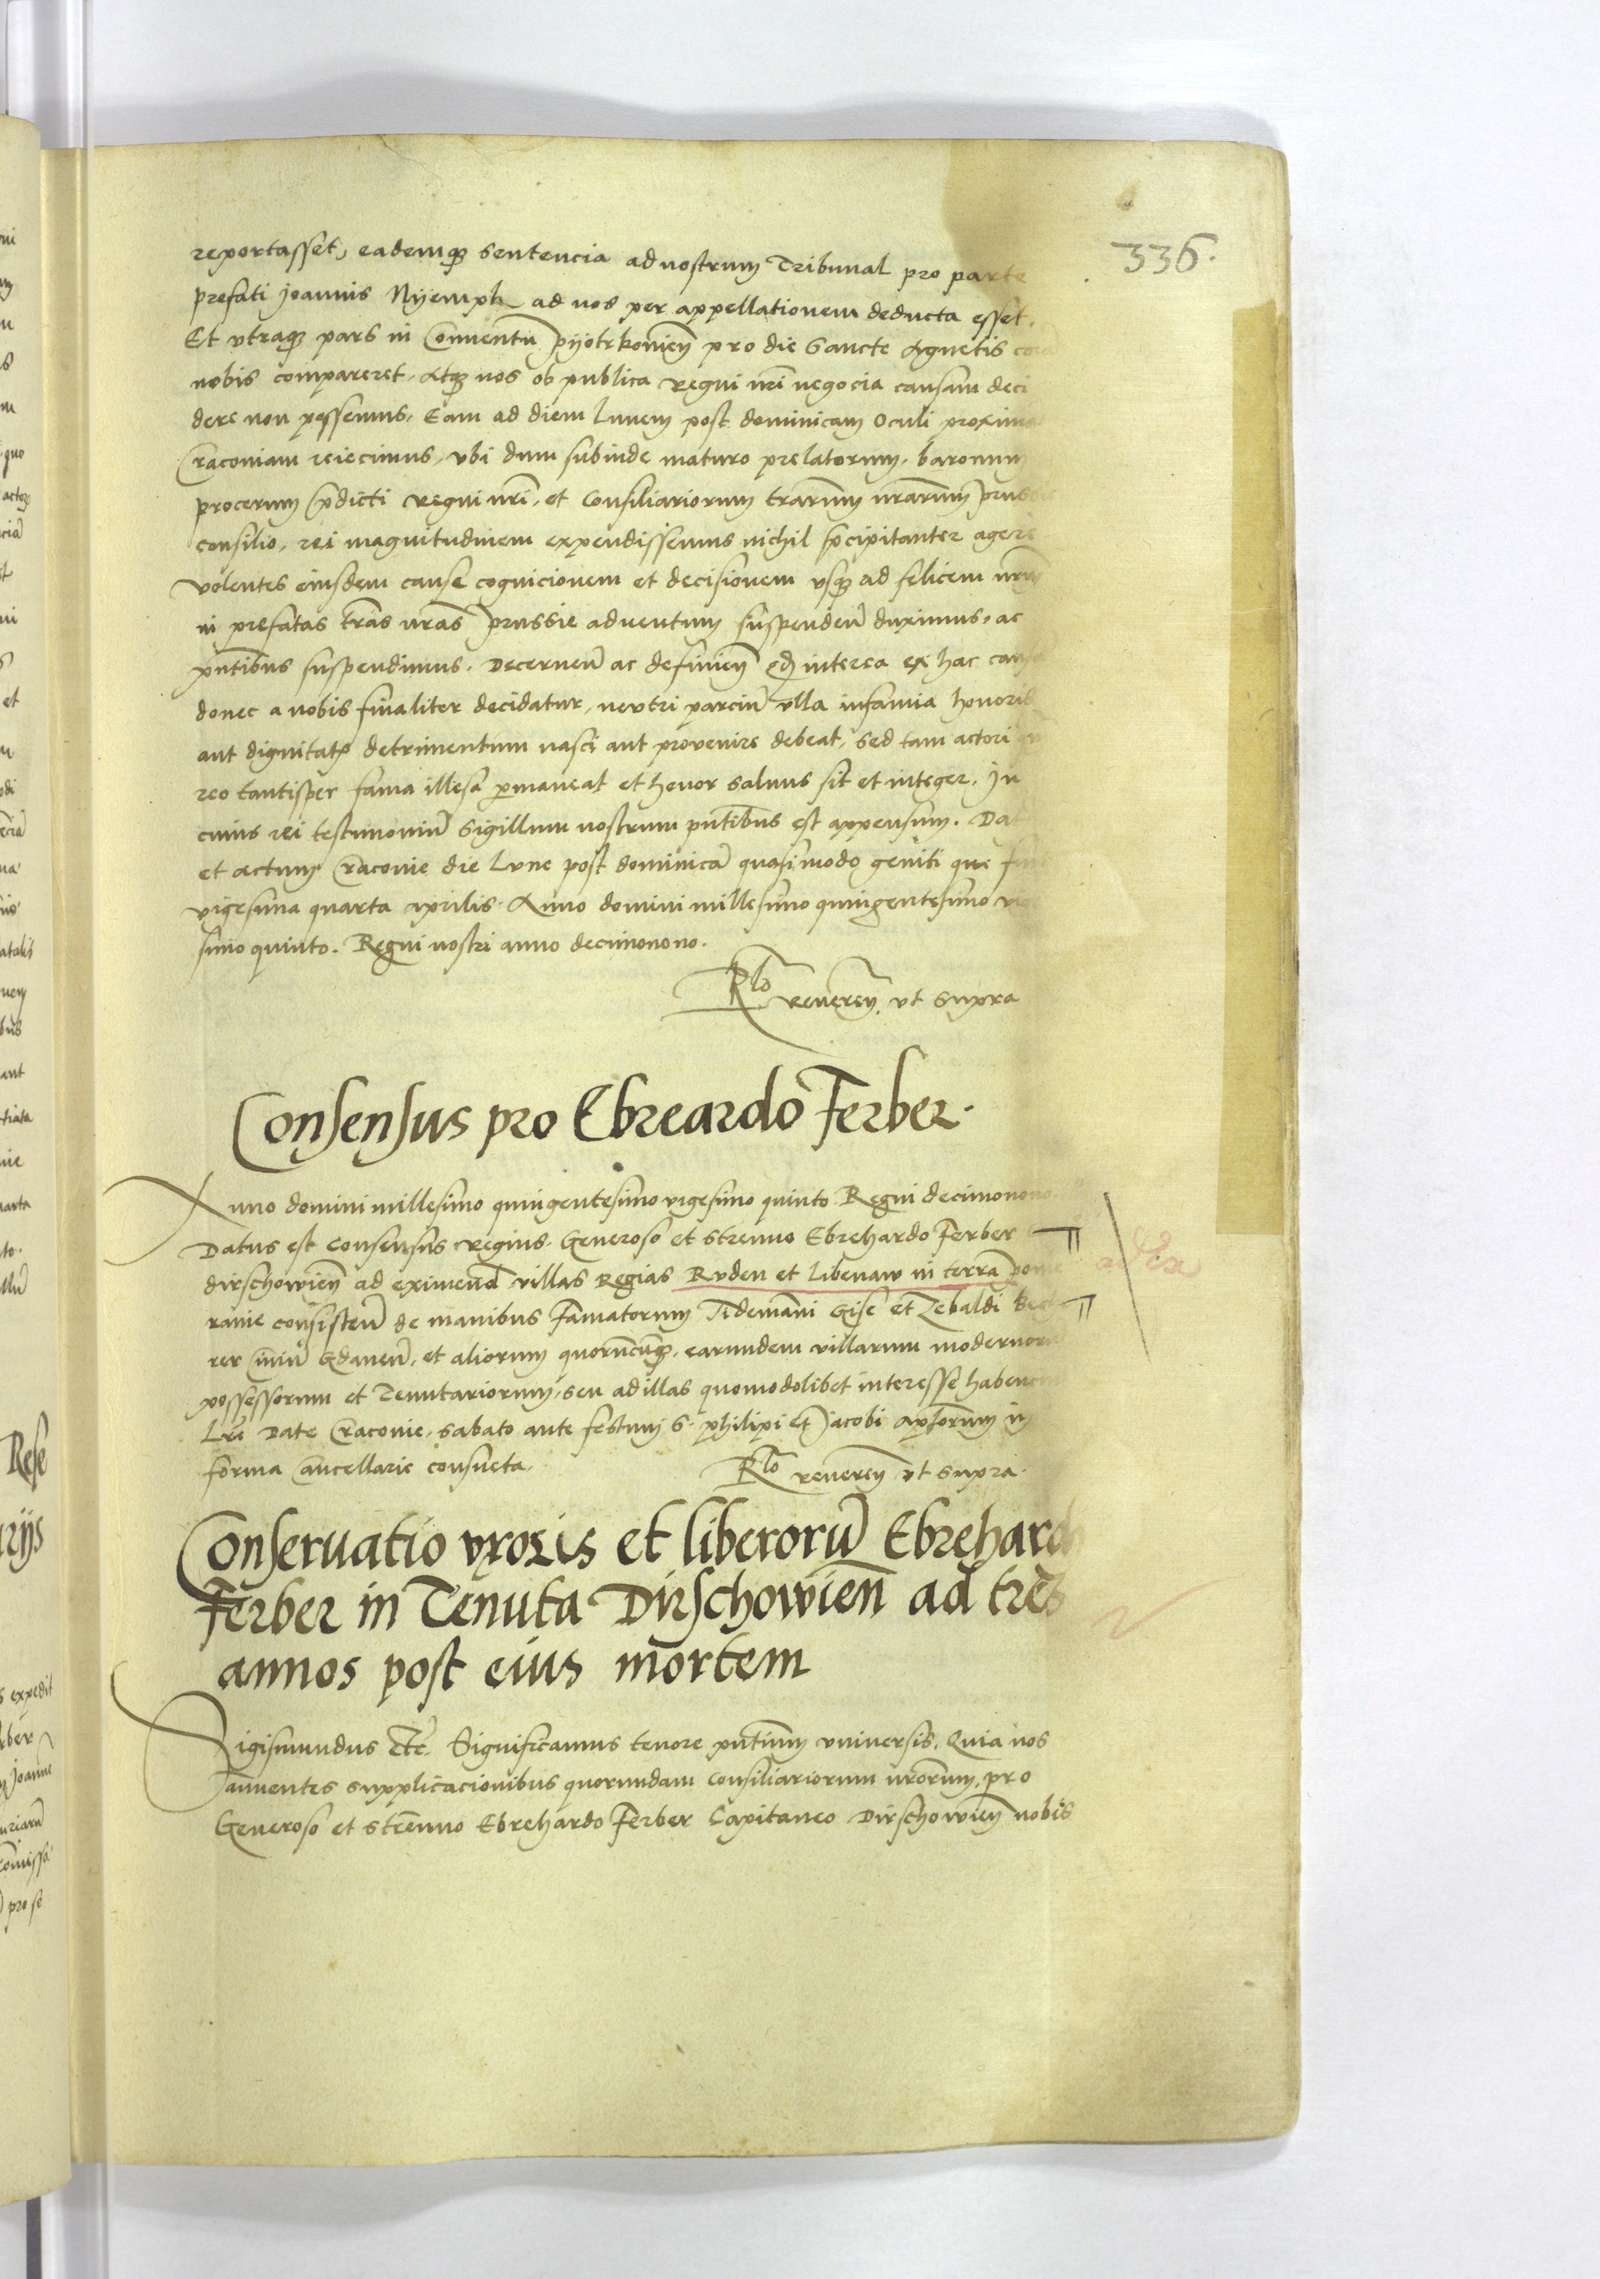 336.
reportasset, eademq3 sentencia ad nostrum Tribunal pro parte
prefati Joannis Nyemptz ad nos per appellationem deducta esset.
Et utraq3 pars in Conventu Pyotrkovien pro die Sancte Agnetis
nobis compareret. Atq3 nos ob publica regni nri negocia causam deci
dere non possemus. Eam ad diem Lunem post dominicam Oculi proxima
Cracoviam reiecimus, ubi dum subinde maturo prelatorum, baronum
procerum pdicti regni nri, et Consiliariorum terrarum nrarum
consilio, rei magnitudinem expendissemus nichil pcipitanter agere
volentes eiusdem cause cognicionem et decisionem usq3 ad felicem nrm
in prefatas tras nras Prussie adventum suspenden duximus, ac
pntibus suspendimus. Decernen ac definien qd interea ex hac
donec a nobis finaliter decidatur, neutri parcium ulla infamia honoris
aut dignitatis detrimentum nasci aut provenire debeat, sed tam actori
reo tantisper fama illesa pmaneat et honor salvus sit et integer. In
cuius rei testimoniu Sigillum nostrum pntibus est appensum. Dat
et actum Cracovie die Lune post dominica quasimodo geniti que
vigesima quarta Aprilis. Anno domini millesimo quingentesimo
simo quinto. Regni nostri anno decimonono.
Rlo reveren ut supra
Consensus pro Ebreardo Ferber.
Anno domini millesimo quingentesimo vigesimo quinto Regni decimonono
Datus est Consensus regius. Generoso et Strenuo Ebrehardo Ferber
dirschowien ad eximend villas Regias Ruden et Libenaw in terra pome
ranie consisten de manibus Famatorum Tidemani Gise et Zebaldi
rer Civiu Gdanen, et aliorum quorucunq3, earundem villarum
possessorum et Tenutariorum, seu ad illas quomodolibet interesse
Lre Date Cracovie, sabato ante festum S. philipi et Jacobi aplorum in
forma Cancellarie consueta.
Rlo reveren ut supra.
Conservatio uxoris et liberoru Ebrehardi
Ferber in Tenuta Dirschowien ad tres
annos post eius mortem
Sigismundus etc. Significamus tenore pntium universis. Quia nos
annuentes supplicacionibus quorundam Consiliariorum nrorum, pro
Generoso et strenuo Ebrehardo Ferber Capitaneo Dirschowien nobis